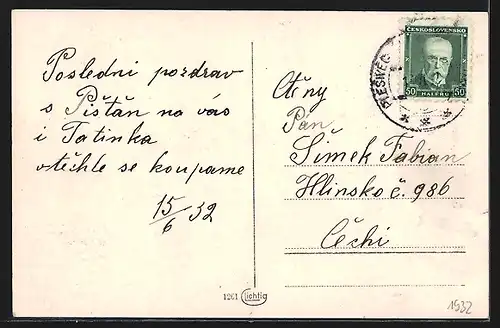 Poslední pozdrav
s Pišťan na vás
i Tatínka
vtěchle se koupame
15/6 32
1261 Lichtig
ČESKOSLOVENSKO
50 HALÉŘŮ 50
Ctěny
Pan
Šimek Fabian
Hlinsko č. 986
Čechi
1932